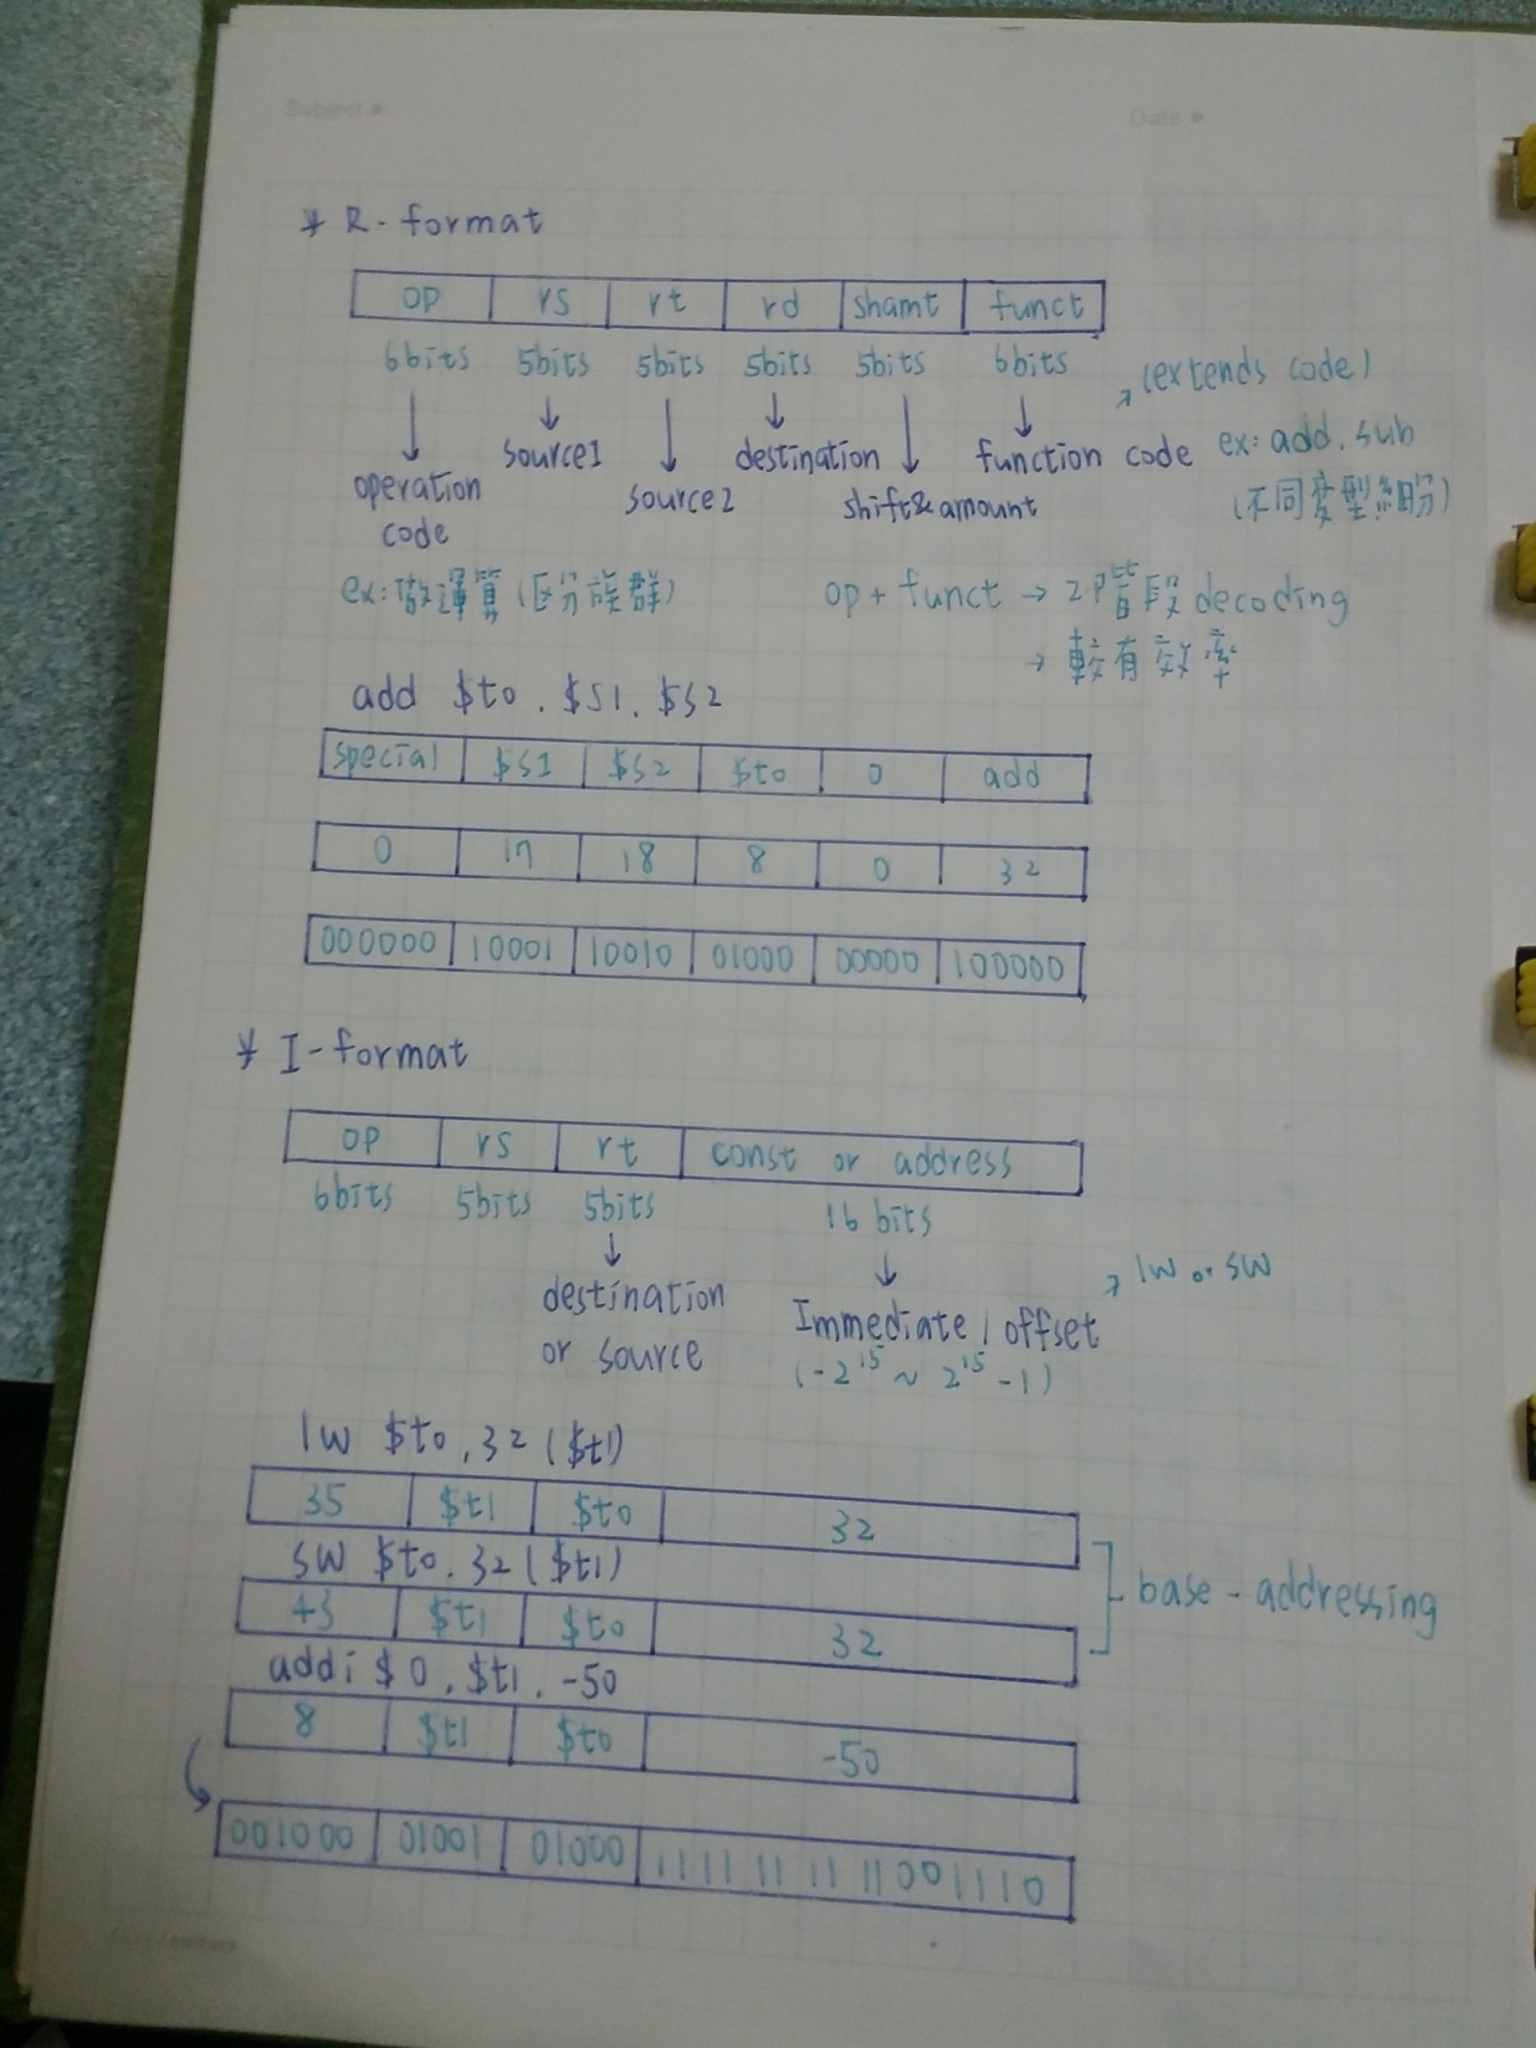 Subject ▸ Date ▸
* R-format
op rs rt rd shamt funct
6bits 5bits 5bits 5bits 5bits 6bits (extends code)
operation code source1 source2 destination shift&amount function code ex: add. sub
(不同変型細分)
ex: 做運算 (区分族群) op + funct → 2階段 decoding
→ 較有效率
add $t0. $s1. $s2
special $s1 $s2 $t0 0 add
0 17 18 8 0 32
000000 10001 10010 01000 00000 100000
* I-format
op rs rt const or address
6bits 5bits 5bits 16 bits
→ lw or sw
destination or source Immediate / offset
(-2^15 ~ 2^15 -1)
lw $t0. 32 ($t1)
35 $t1 $t0 32
sw $t0. 32 ($t1)
43 $t1 $t0 32
base - addressing
addi $0. $t1. -50
8 $t1 $t0 -50
001000 01001 01000 1111111111001110